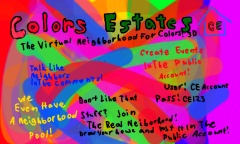 Colors Estates CE
The Virtual Neighborhood For Colors! 3D
Talk Like
Neighbors
InThe Comments!
Create Events
InThe Public
Account!
User: CE Account
Pass: CE123
We
Even Have
A Neighborhood
Pool!
Don't Like That
Stuff? Join
The Real Neihborhood!
Draw Your house and Put It In The
Public Account!